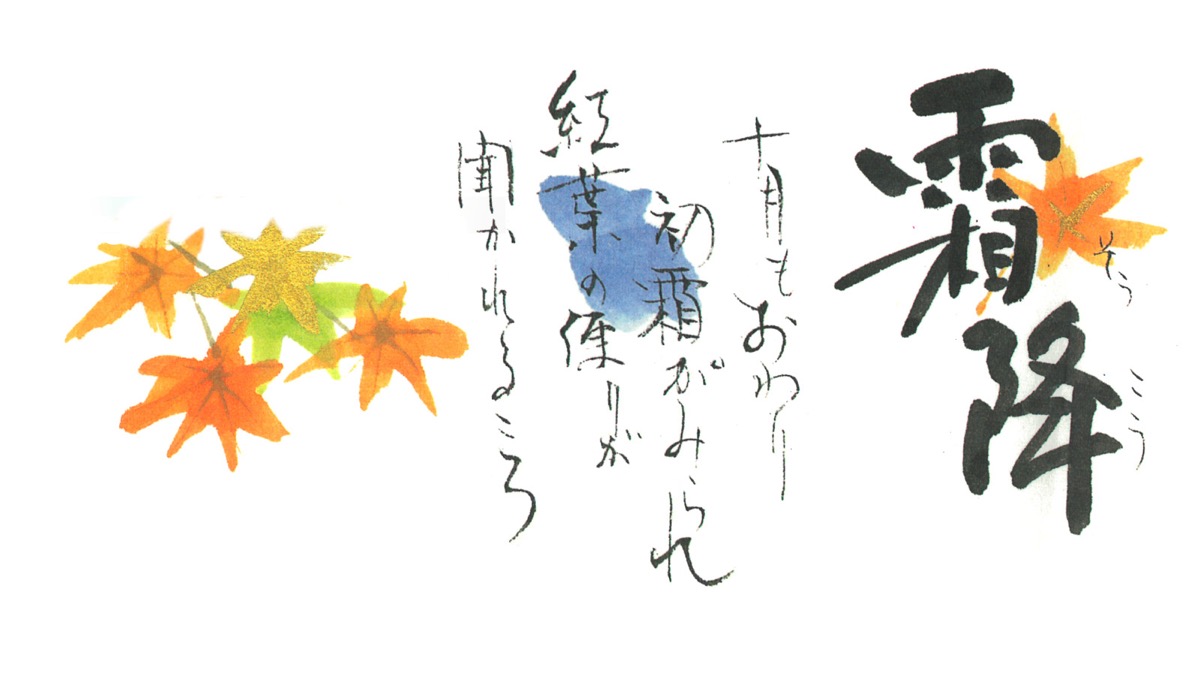 霜降
そうこう
十月もおわり
初霜がみられ
紅葉の便りが
聞かれるころ